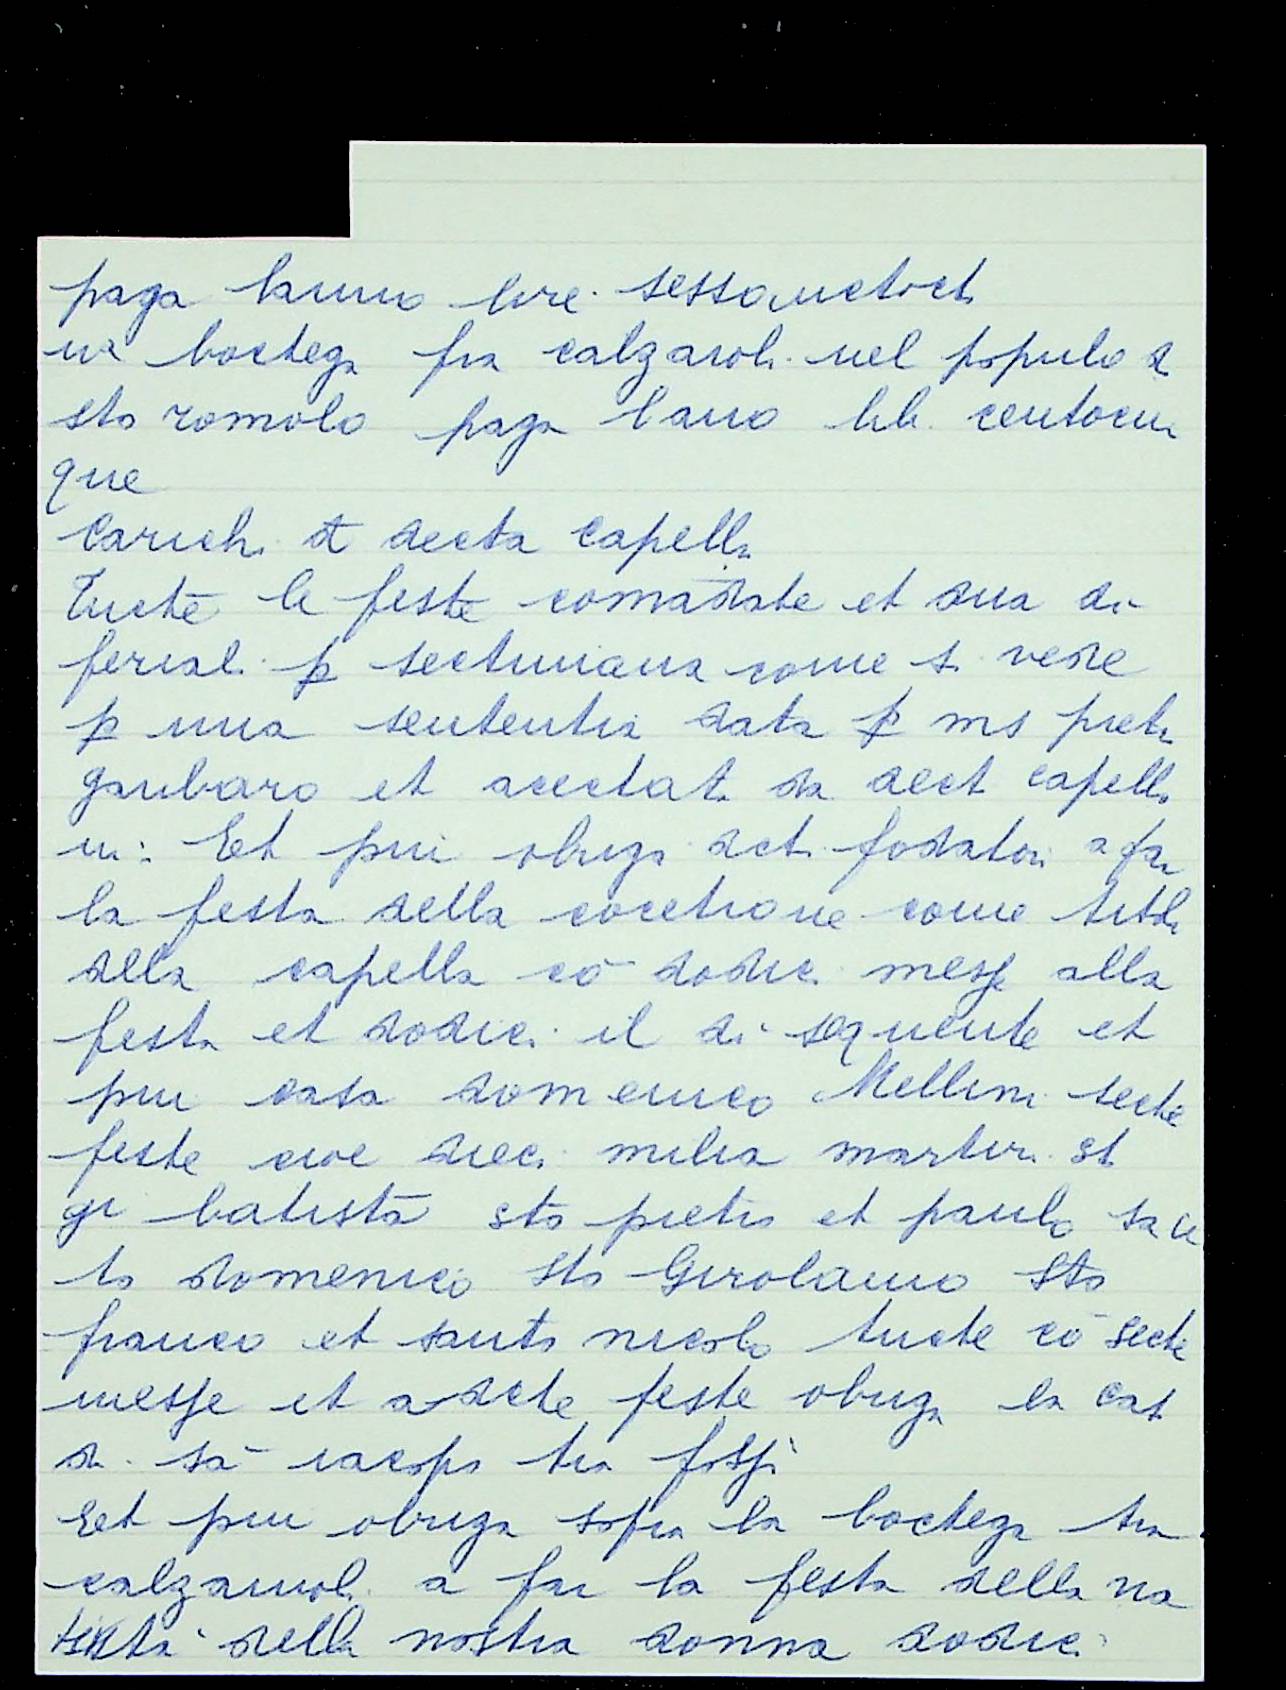 paga lanno lire sessantocti
una boctega fra calzaroli nel populo d
sto romolo paga lano lib. centocin
que
Carichi d decta Capella
Tucte le feste comādate et dua di
feriali p̱ sectimana come si vede
p̱ una sententia data p̱ ms pietro
gambaro et acectata da decti capella
ni: Et piu obriga decti fōdatori a far
la festa della cōcetione come titolo
della capella cō dodici messe alla
festa et dodici il di sequente et
piu casa domenico Mellini secte
feste cioe dieci milia martiri st
gi batista sto pietro et paulo san
to domenico sto Girolamo sto
franco et santo nicolo tucte cō secte
messe et a decte feste obriga la casa
di sā iacopo tra fossi
Eet piu obriga sopra la boctega tra
calzaiuoli a far la festa della na
tività della nostra donna dodici